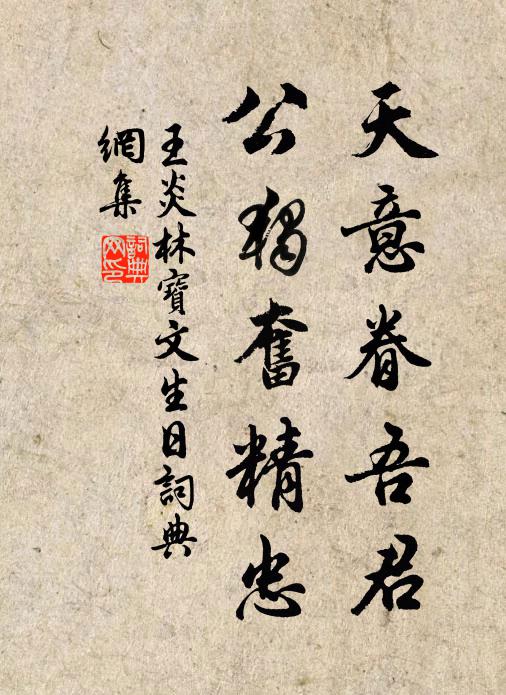 天意眷吾君
公獨奮精忠
王炎林寶文生日詞典
網集
詞典網印